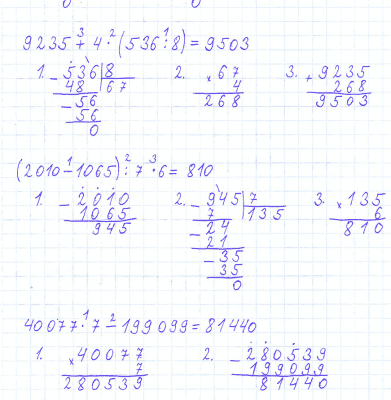 9235 + 4 · (536 : 8) = 9503
3 2 1
1. 536 | 8 2. × 67 3. + 9235
- 48 67 4 268
56 268 9503
- 56
0
(2010 - 1065) : 7 · 6 = 810
1 2 3
1. - 2010 2. - 945 | 7 3. × 135
1065 7 135 6
945 - 24 810
21
- 35
35
0
40077 · 7 - 199099 = 81440
1 2
1. × 40077 2. - 280539
7 199099
280539 81440